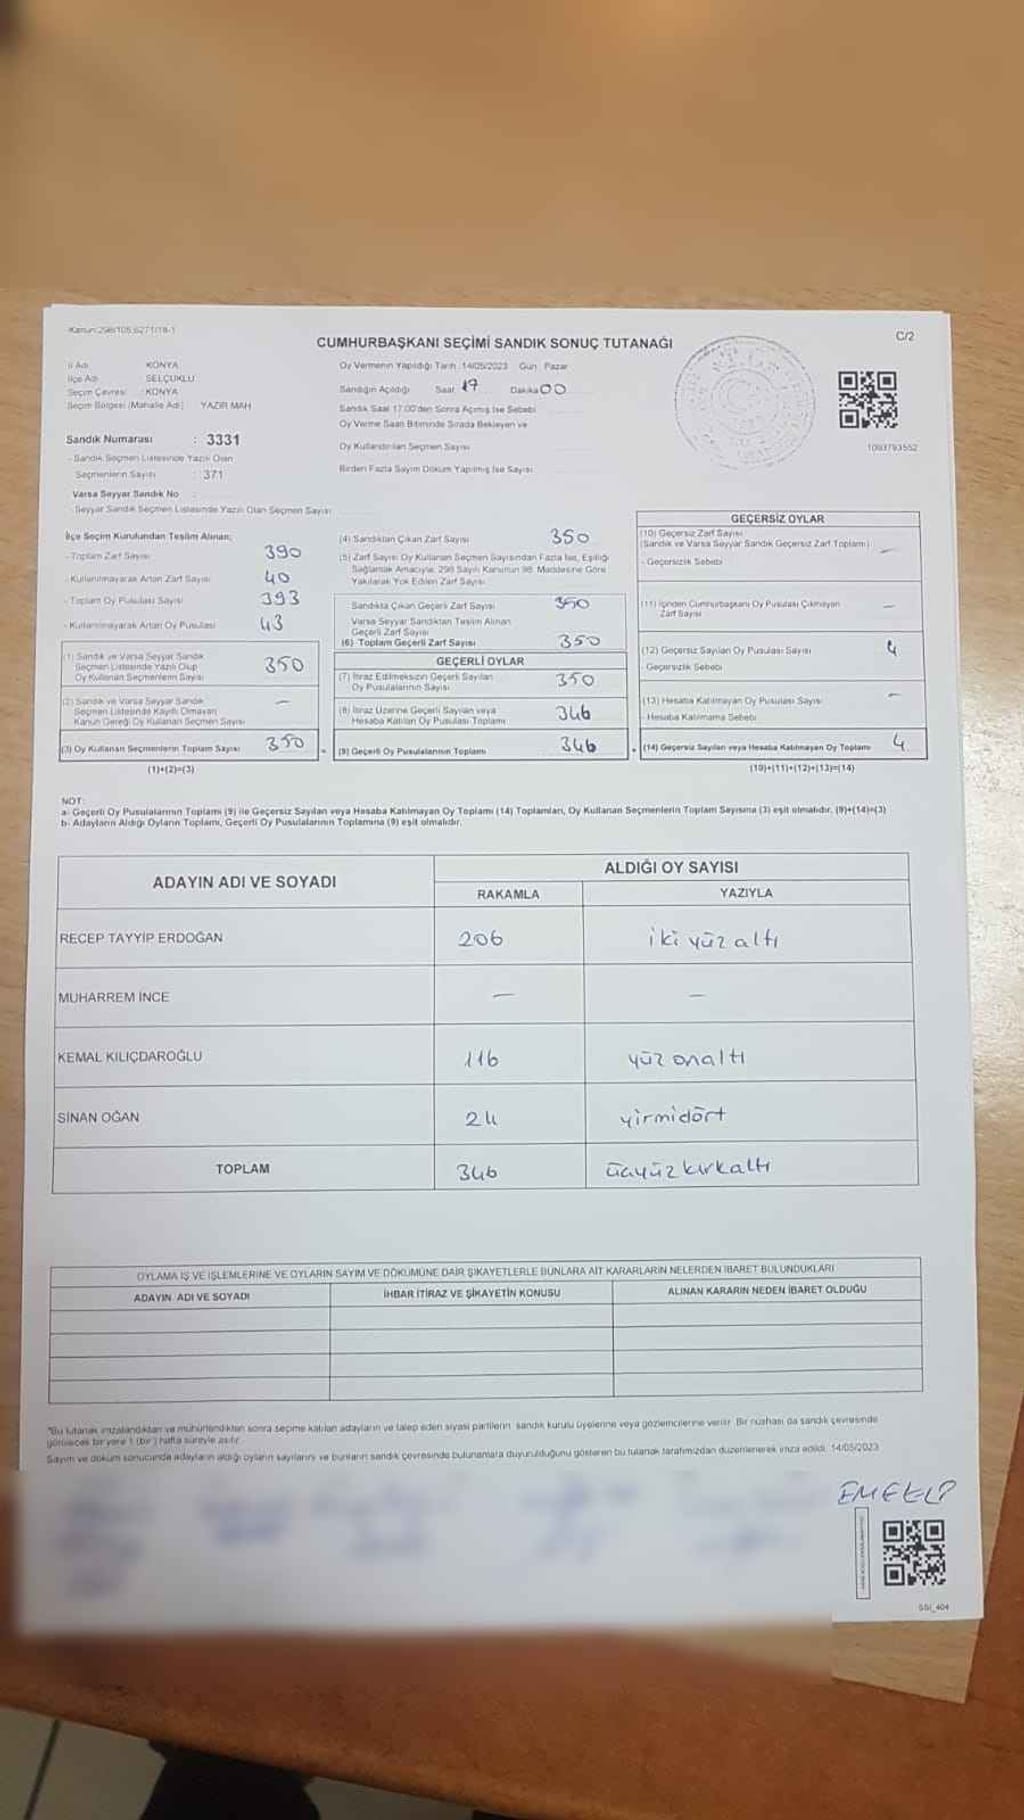 Kanun:298/105,6271/18-1
C/2
CUMHURBAŞKANI SEÇİMİ SANDIK SONUÇ TUTANAĞI
İl Adı KONYA
İlçe Adı SELÇUKLU
Seçim Çevresi : KONYA
Seçim Bölgesi (Mahalle Adı) YAZIR MAH
Sandık Numarası : 3331
- Sandık Seçmen Listesinde Yazılı Olan
Seçmenlerin Sayısı : 371
Varsa Seyyar Sandık No
Seyyar Sandık Seçmen Listesinde Yazılı Olan Seçmen Sayısı
Oy Vermenin Yapıldığı Tarih :14/05/2023 Gün : Pazar
Sandığın Açıldığı Saat 17 Dakika 00
Sandık Saat 17:00'den Sonra Açılmış İse Sebebi
Oy Verme Saati Bitiminde Sırada Bekleyen ve
Oy Kullandırılan Seçmen Sayısı
Birden Fazla Sayım Döküm Yapılmış İse Sayısı
1093793552
İlçe Seçim Kurulundan Teslim Alınan;
- Toplam Zarf Sayısı 390
- Kullanılmayarak Artan Zarf Sayısı 40
- Toplam Oy Pusulası Sayısı 393
- Kullanılmayarak Artan Oy Pusulası 43
(1) Sandık ve Varsa Seyyar Sandık
Seçmen Listesinde Yazılı Olup
Oy Kullanan Seçmenlerin Sayısı 350
(2) Sandık ve Varsa Seyyar Sandık
Seçmen Listesinde Kayıtlı Olmayan
Kanun Gereği Oy Kullanan Seçmen Sayısı —
(3) Oy Kullanan Seçmenlerin Toplam Sayısı 350
(1)+(2)=(3)
(4) Sandıktan Çıkan Zarf Sayısı 350
(5) Zarf Sayısı Oy Kullanan Seçmen Sayısından Fazla İse, Eşitliği
Sağlamak Amacıyla, 298 Sayılı Kanunun 98. Maddesine Göre
Yakılarak Yok Edilen Zarf Sayısı
Sandıkta Çıkan Geçerli Zarf Sayısı 350
Varsa Seyyar Sandıktan Teslim Alınan
Geçerli Zarf Sayısı
(6) Toplam Geçerli Zarf Sayısı 350
GEÇERLİ OYLAR
(7) İtiraz Edilmeksizin Geçerli Sayılan
Oy Pusulalarının Sayısı 350
(8) İtiraz Üzerine Geçerli Sayılan veya
Hesaba Katılan Oy Pusulası Toplamı 346
(9) Geçerli Oy Pusulalarının Toplamı 346
GEÇERSİZ OYLAR
(10) Geçersiz Zarf Sayısı
(Sandık ve Varsa Seyyar Sandık Geçersiz Zarf Toplamı) —
- Geçersizlik Sebebi
(11) İçinden Cumhurbaşkanı Oy Pusulası Çıkmayan
Zarf Sayısı —
(12) Geçersiz Sayılan Oy Pusulası Sayısı 4
- Geçersizlik Sebebi
(13) Hesaba Katılmayan Oy Pusulası Sayısı —
- Hesaba Katılmama Sebebi
(14) Geçersiz Sayılan veya Hesaba Katılmayan Oy Toplamı 4
(10)+(11)+(12)+(13)=(14)
NOT:
a- Geçerli Oy Pusulalarının Toplamı (9) ile Geçersiz Sayılan veya Hesaba Katılmayan Oy Toplamı (14) Toplamları, Oy Kullanan Seçmenlerin Toplam Sayısına (3) eşit olmalıdır. (9)+(14)=(3)
b- Adayların Aldığı Oyların Toplamı, Geçerli Oy Pusulalarının Toplamına (9) eşit olmalıdır.
ADAYIN ADI VE SOYADI ALDIĞI OY SAYISI
RAKAMLA YAZIYLA
RECEP TAYYİP ERDOĞAN 206 iki yüz altı
MUHARREM İNCE — —
KEMAL KILIÇDAROĞLU 116 yüz onaltı
SİNAN OĞAN 24 yirmidört
TOPLAM 346 üçyüz kırkaltı
OYLAMA İŞ VE İŞLEMLERİNE VE OYLARIN SAYIM VE DÖKÜMÜNE DAİR ŞİKAYETLERLE BUNLARA AİT KARARLARIN NELERDEN İBARET BULUNDUKLARI
ADAYIN ADI VE SOYADI İHBAR İTİRAZ VE ŞİKAYETİN KONUSU ALINAN KARARIN NEDEN İBARET OLDUĞU
"Bu tutanak imzalandıktan ve mühürlendikten sonra seçime katılan adayların ve talep eden siyasi partilerin sandık kurulu üyelerine veya gözlemcilerine verilir. Bir nüshası da sandık çevresinde
görülecek bir yere 1 (bir) hafta süreyle asılır.
Sayım ve döküm sonucunda adayların aldığı oyların sayılarını ve bunların sandık çevresinde bulunanlara duyurulduğunu gösteren bu tutanak tarafımızdan düzenlenerek imza edildi. 14/05/2023
SSI_404